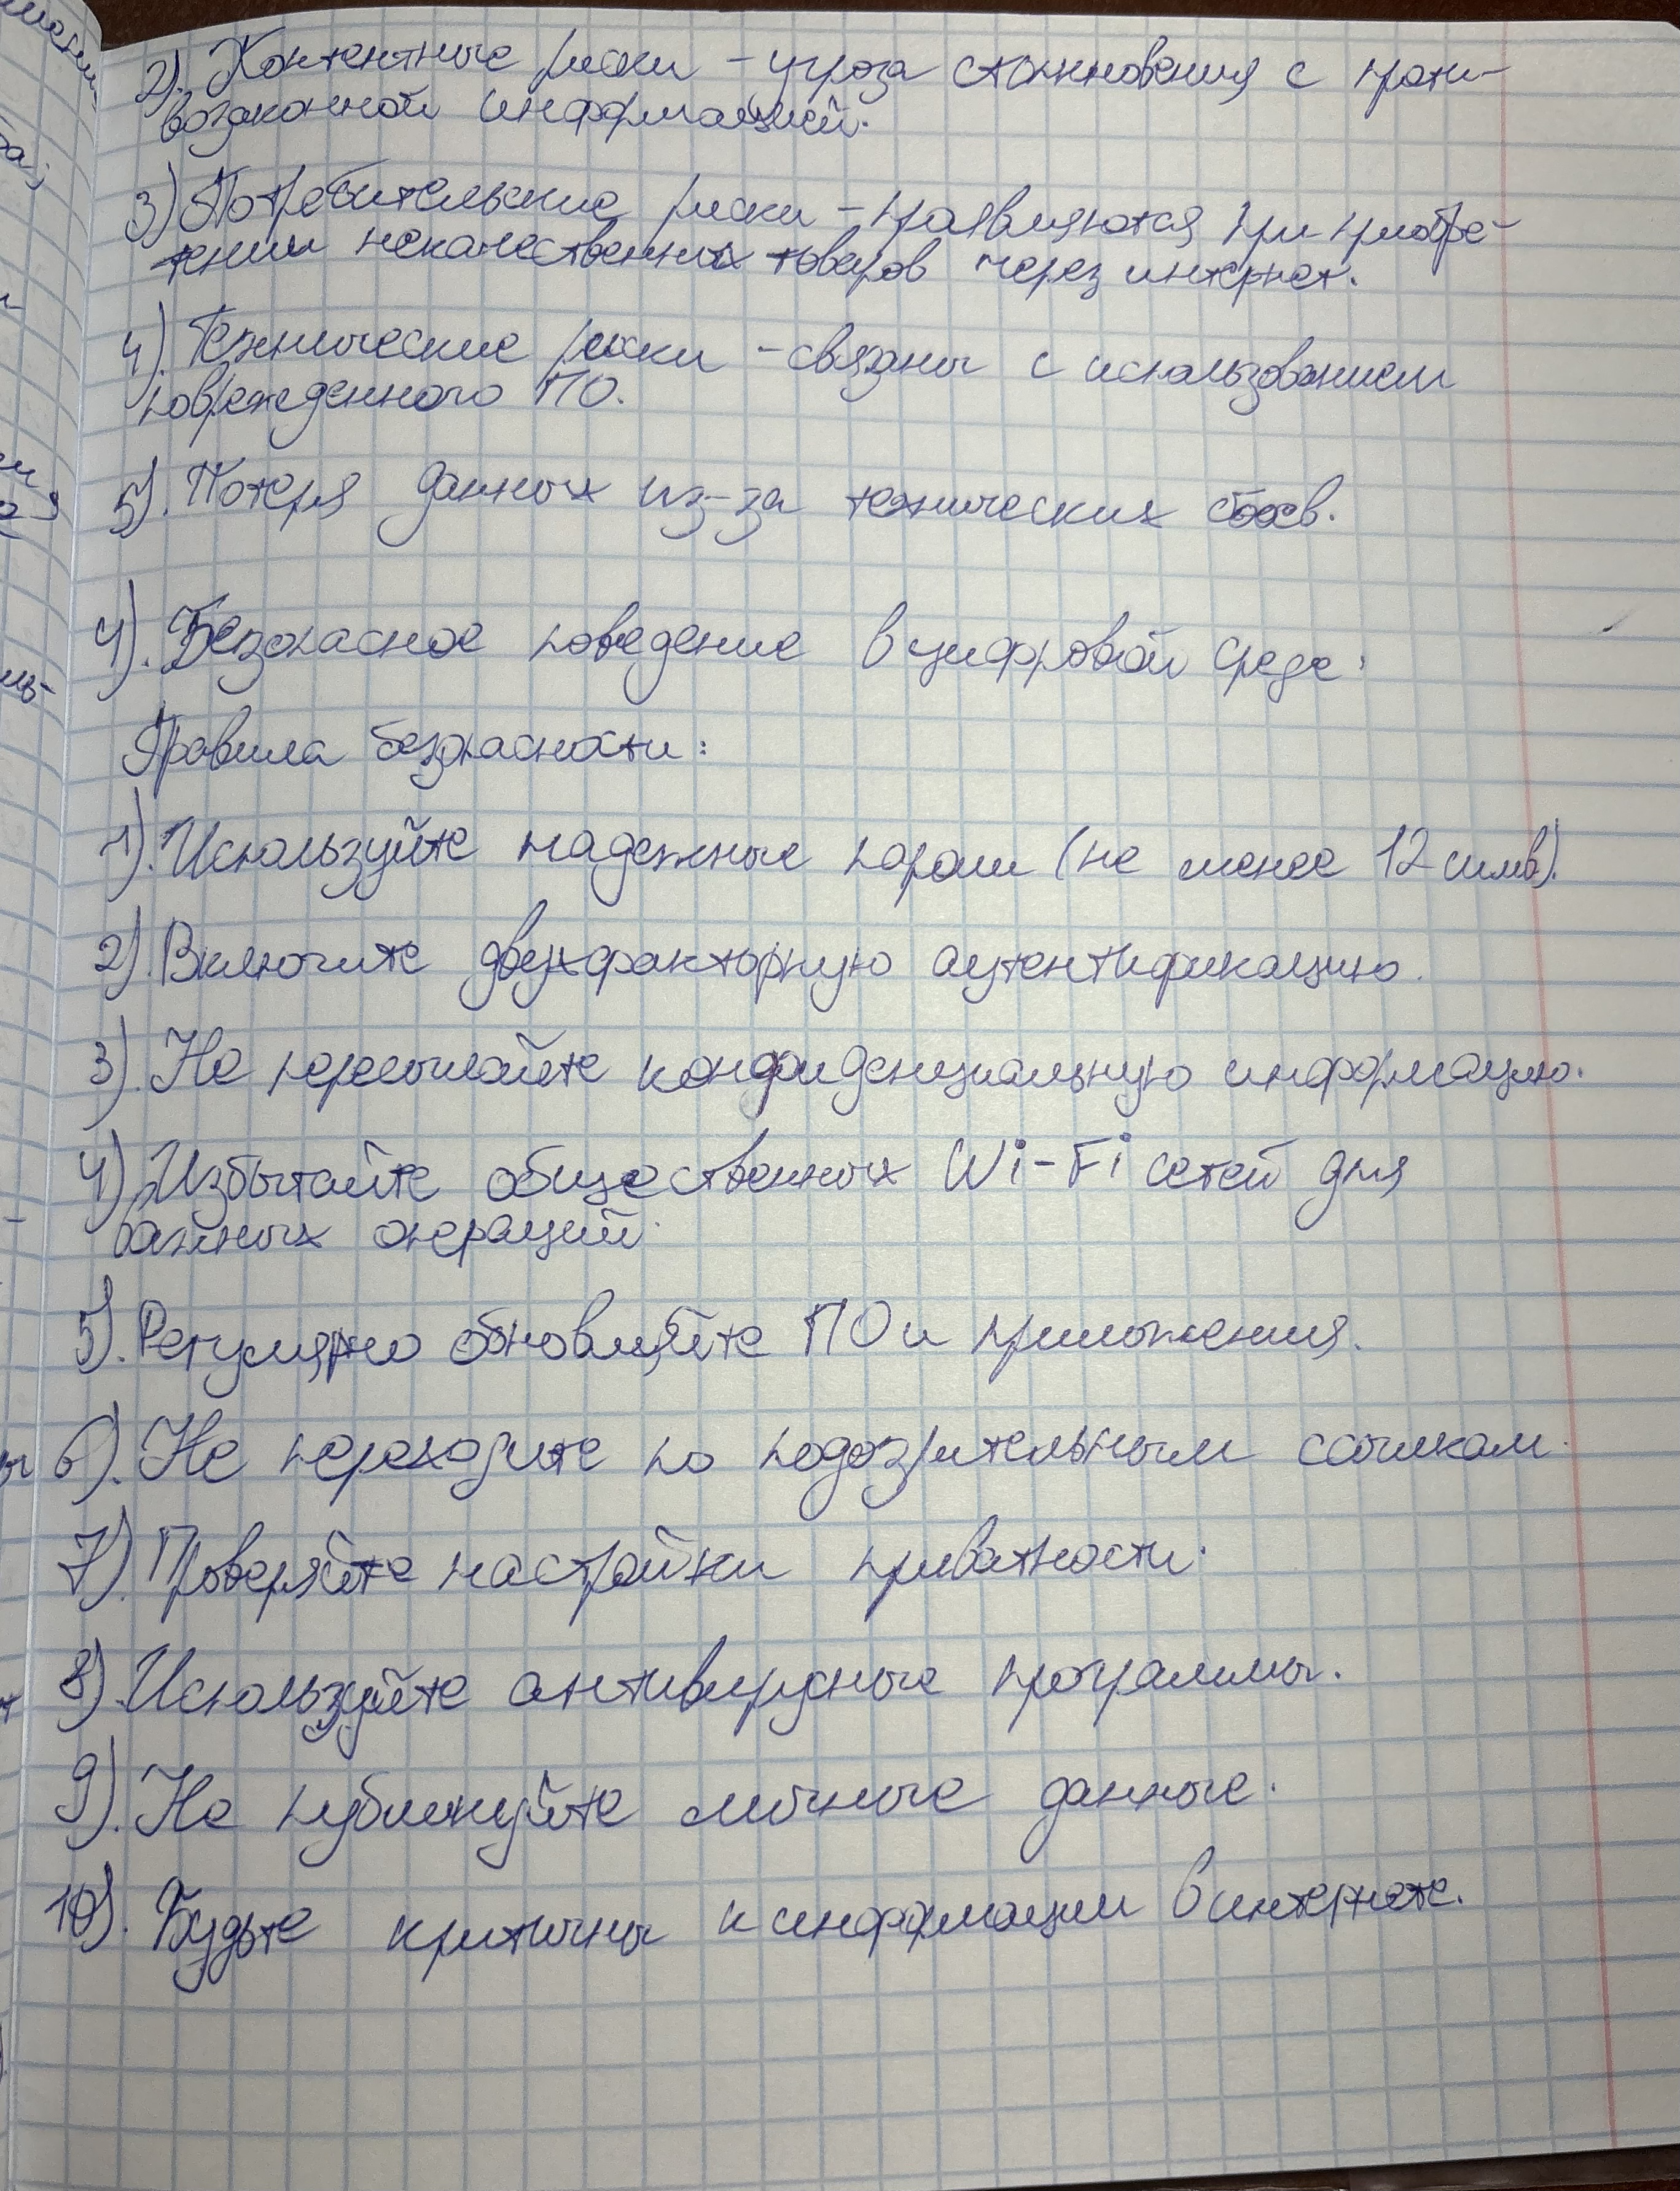 2). Контентные риски - угроза столкновения с проти-
возаконной информацией.
3) Потребительские риски - проявляются при приобре-
тении некачественных товаров через интернет.
4). Технические риски - связаны с использованием
поврежденного ПО.
5). Потеря данных из-за технических сбоев.
4). Безопасное поведение в цифровой среде:
Правила безопасности:
1). Используйте надежные пароли (не менее 12 симв).
2). Включите двухфакторную аутентификацию.
3). Не пересылайте конфиденциальную информацию.
4) Избегайте общественных Wi-Fi сетей для
важных операций.
5). Регулярно обновляйте ПО и приложения.
6). Не переходите по подозрительным ссылкам.
7). Проверяйте настройки приватности.
8). Используйте антивирусные программы.
9). Не публикуйте личные данные.
10). Будьте критичны к информации в интернете.